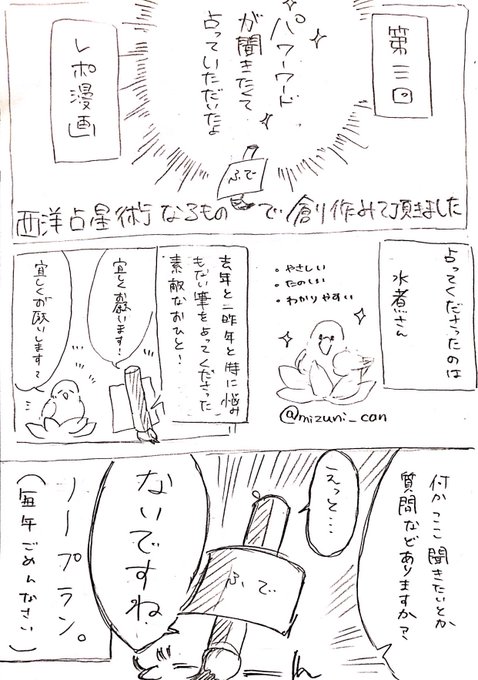 第三回
パワーワード
が聞きたくて
占っていただいたよ
レポ漫画
ふで
西洋占星術なるもので創作みて頂きました
占ってくださったのは
水煮さん
・やさしい
・たのしい
・わかりやすい
@mizuni_can
去年と一昨年と時に悩み
もだい筆を占ってくださった
素敵なおひと!
宜しく願います!
宜しくお願いします〜
何かここ聞きたいとか
質問などありますか?
えっと…
ふで
ないですね
ノープラン。
(毎年ごめんなさい)